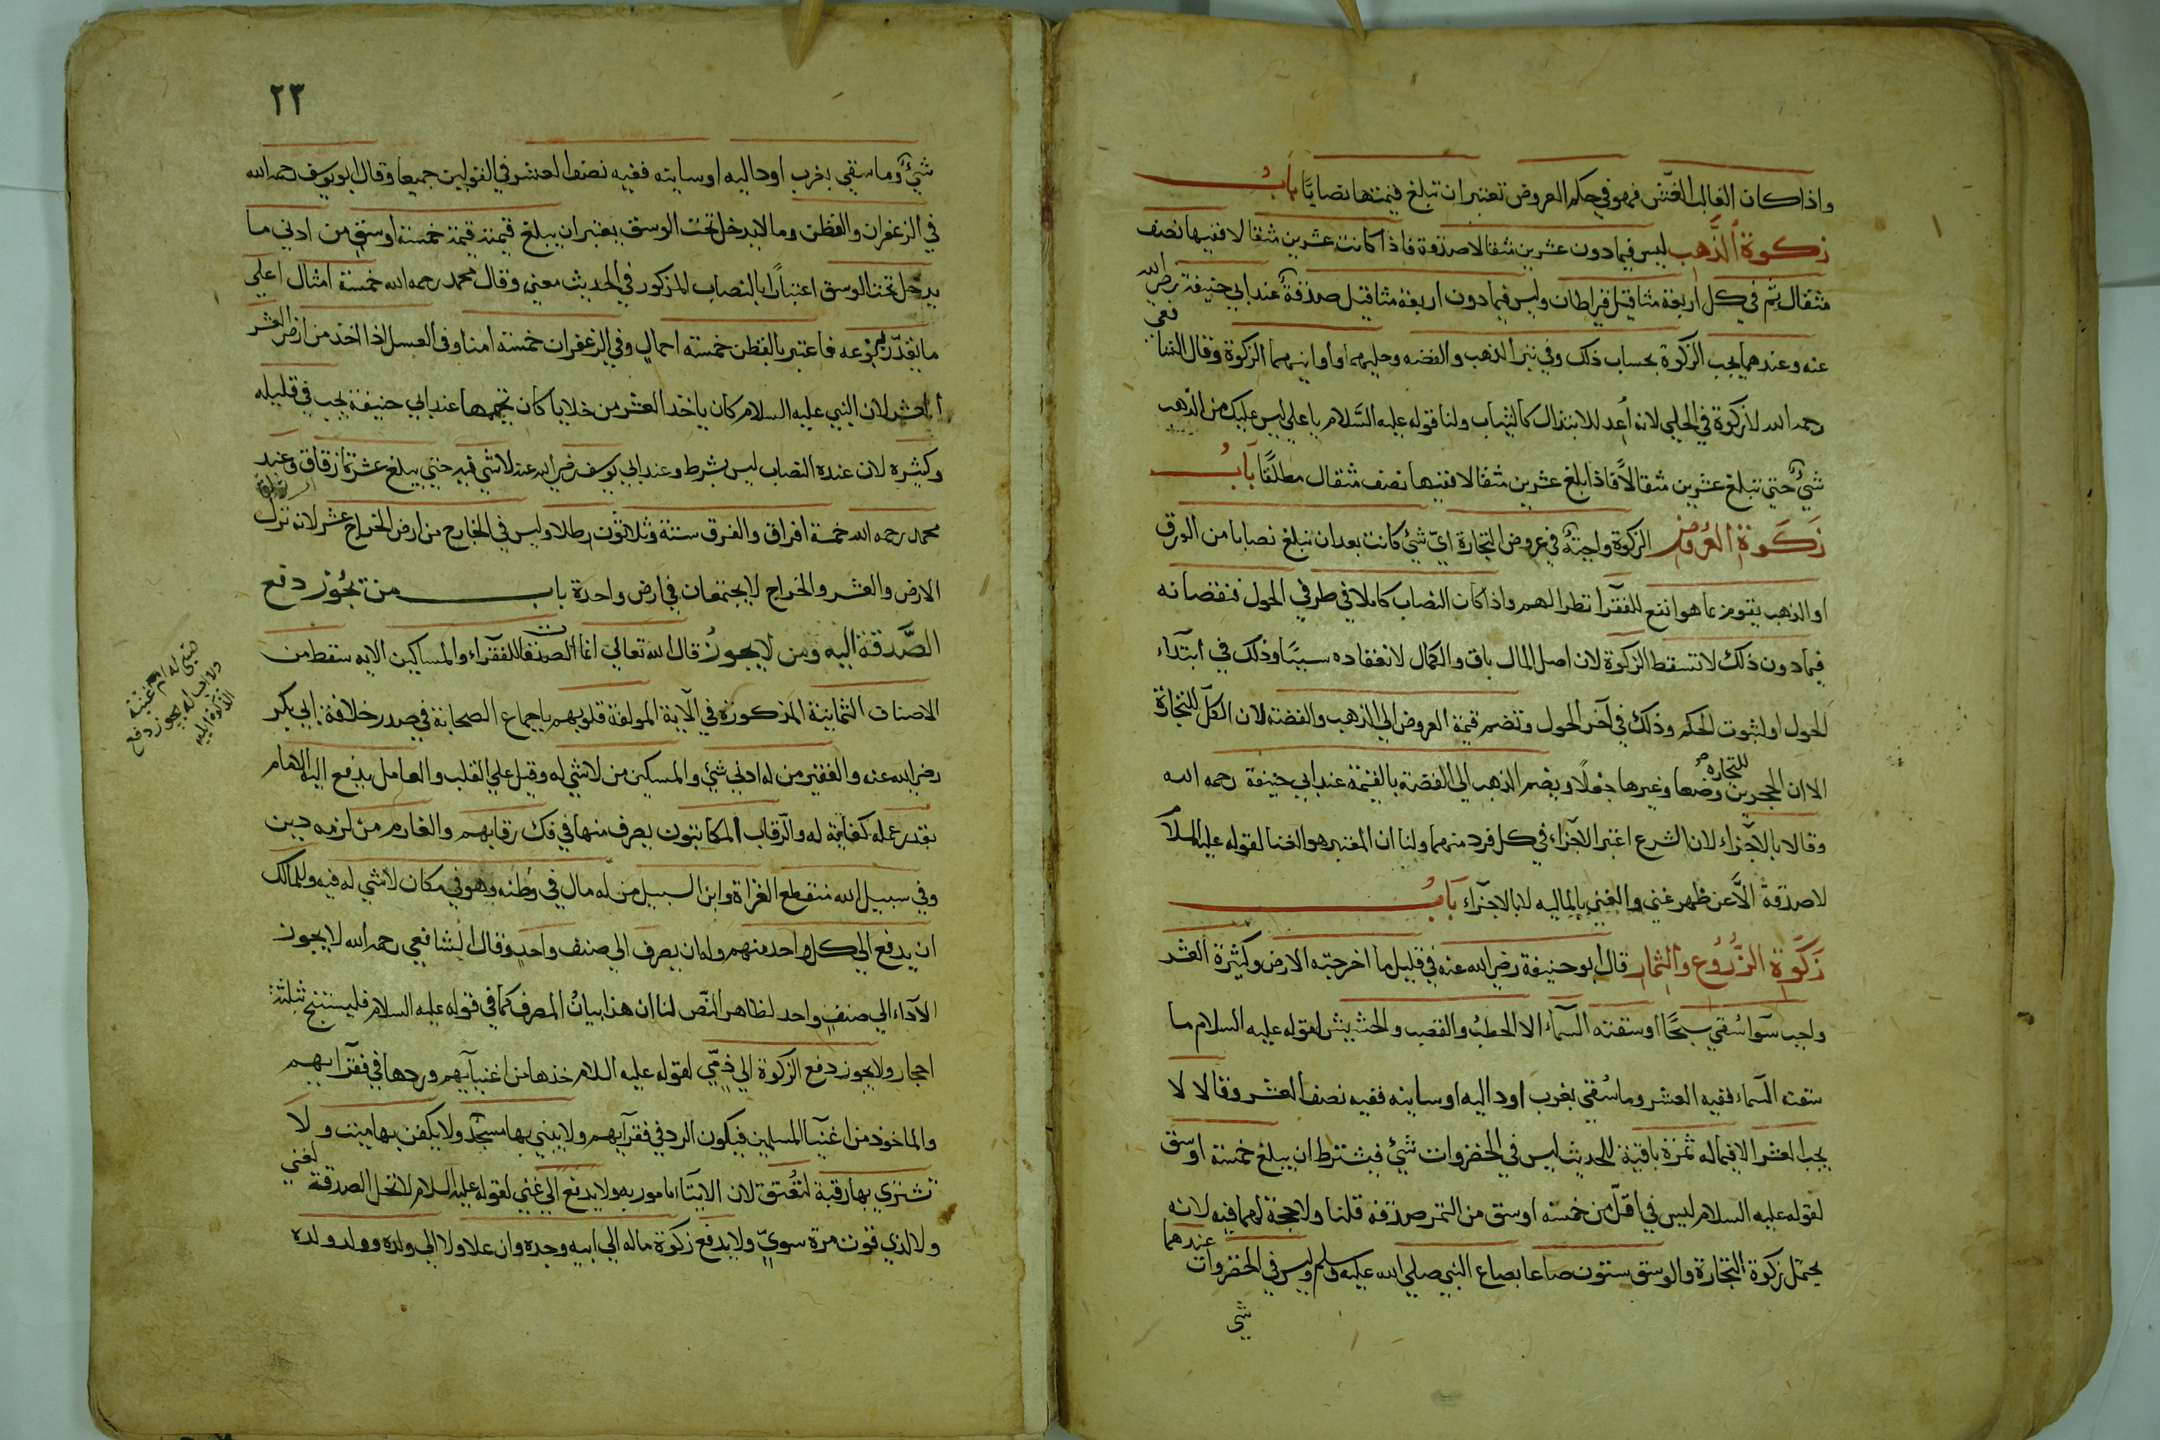 واذا كان الغالب الغش فهو في حكم العروض تعتبر ان تبلغ قيمتها نصابًا باب
زكوة الذهب ليس فيما دون عشرين مثقالا صدقة فاذا كانت عشرين مثقالا ففيها نصف
مثقال ثم في كل اربعة مثاقيل قيراطان وليس فيما دون اربعة مثاقيل صدقة عند ابي حنيفة رضي الله
عنه وعندهما يجب الزكوة بحساب ذلك وفي تبر الذهب والفضه وحليهما واوانيهما الزكوة وقال الشافعي
رحمه الله لا زكوة في الحلي لانه اعد للابتذال كالثياب ولنا قوله عليه السلام يا علي ليس عليك من الذهب
شيئ حتي تبلغ عشرين مثقالا فاذا بلغ عشرين مثقالا ففيها نصف مثقال مطلقا باب
زكوة العروض الزكوة واجبة في عروض التجارة ايّ شئ كانت بعد ان تبلغ نصابا من الورق
او الذهب يقوم بما هو انفع للفقرا نظرا لهم واذا كان النصاب كاملا في طرفي الحول فنقصانه
فيما دون ذلك لا تسقط الزكوة لان اصل المال باق والكمال لانعقاده سببًا وذلك في ابتداء
الحول او لثبوت الحكم وذلك في آخر الحول وتضم قيمة العروض الي الذهب والفضه لان الكل للتجارة
الا ان الحجرين للتجارة وضعا وغيرها جعلا ويضم الذهب الي الفضة بالقيمة عند ابي حنيفة رحمه الله
وقالا بالاجزاء لان الشرع اعتبر الاجزاء في كل فرد منهما ولنا ان المعتبر هو الغنا لقوله عليه السلام
لا صدقة الا عن ظهر غني والغني بالماليه لا بالاجزاء باب
زكوة الزروع والثمار قال ابو حنيفة رضي الله عنه في قليل ما اخرجته الارض وكثيرة العشر
واجب سوا سُقي سيحًا او سقته السماء الا الحطب والقصب والحشيش لقوله عليه السلام ما
سقته السماء ففيه العشر وما سُقي بغرب او داليه او سانيه ففيه نصف العشر وقالا لا
يجب العشر الا فيما له ثمرة باقية للحديث ليس في الخضروات شئ فيشترط ان يبلغ خمسة اوسق
لقوله عليه السلام ليس في اقل من خمسه اوسق من التمر صدقه قلنا ولا حجة لهما فيه لانه
يحتمل زكوة التجارة والوسق ستون صاعا بصاع النبي صلي الله عليه وسلم وليس في الخضروات عندهما
شي
٢٣
شئ وما سقي بغرب او داليه او سانيه ففيه نصف العشر في القولين جميعا وقال ابو يوسف رحمه الله
في الزعفران والقطن وما لا يدخل تحت الوسق يعتبر ان يبلغ قيمته قيمة خمسة اوسق من ادني ما
يدخل تحت الوسق اعتبارا بالنصاب المذكور في الحديث معني وقال محمد رحمه الله خمسة امثال اعلي
ما يقدر به نوعه فاعتبر بالقطن خمسه احمال وفي الزعفران خمسه امنا وفي العسل اذا اخذ من ارض العشر
العشر لان النبي عليه السلام كان ياخذ العشر من خلايا كان عند ابي حنيفة يجب في قليله
وكثيره لان عنده النصاب ليس بشرط وعند ابي يوسف رضي الله عنه لا شي فيه حتي يبلغ عشرة ازقاق وعند
محمد رحمه الله خمسة افراق والفرق ستة وثلاثون رطلا وليس في الخارج من ارض الخراج عشر لانه نزل
الارض والعشر والخراج لا يجتمعان في ارض واحدة باب من يجوز دفع
الصدقة اليه ومن لا يجوز قال الله تعالي انما الصدقات للفقراء والمساكين الايه سقط من
الاصناف الثمانية المذكوره في الآية المولفة قلوبهم باجماع الصحابة في صدر خلافة ابي بكر
رضي الله عنه والفقير من له ادني شئ والمسكين من لا شي له وقيل علي القلب والعامل يدفع اليه الامام
بقدر عمله كفاية له والرقاب المكاتبون يصرف منها في فك رقابهم والغارم من لزمه دين
وفي سبيل الله منقطع الغزاة وابن السبيل من له مال في وطنه وهو في مكان لا شي له فيه وللمالك
ان يدفع الي كل واحد منهم وله ان يصرف الي صنف واحد وقال الشافعي رحمه الله لا يجوز
الآداء الي صنف واحد لظاهر النص لنا ان هذا بيان المصرف كما في قوله عليه السلام فليستنج بثلثة
احجار ولا يجوز دفع الزكوة الي ذمّي لقوله عليه السلام خذها من اغنيآيهم وردها في فقرآيهم
والماخوذ من اغنيا المسلمين فيكون الرد في فقرآيهم ولا يبني بها مسجد ولا يكفن بها ميت ولا
تشتري بها رقبة لتعتق لان الايتاء مامور به ولا يدفع الي غني لقوله عليه السلام لا تحل الصدقة لغني
ولا لذي قوت مرة سويّ ولا يدفع زكوة ماله الي ابيه وجده وان علا ولا الي ولده وولد ولده